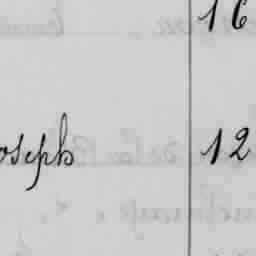 16
oseph 12